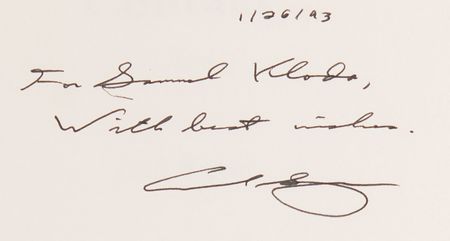 1/26/93
For Samuel Kloda,
With best wishes.